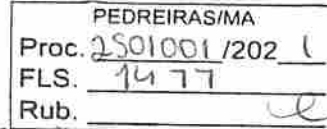 PEDREIRAS/MA
Proc. 2501001 /202 1
FLS. 1477
Rub.